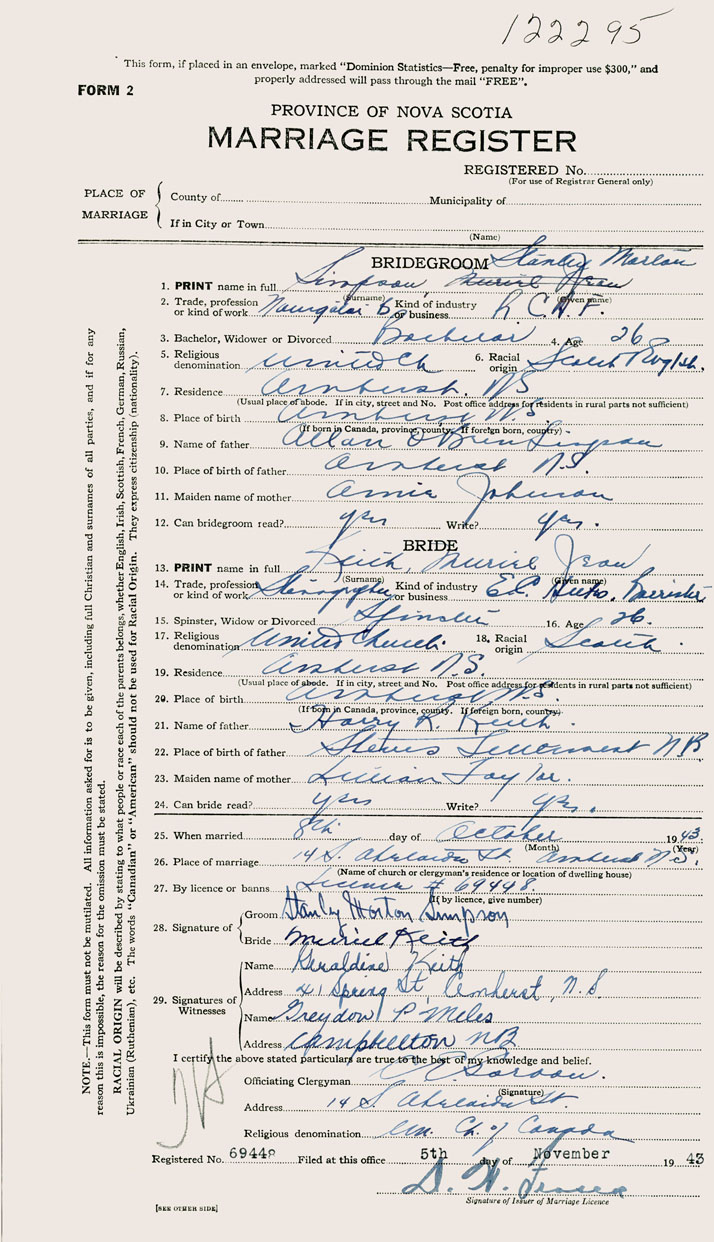 122295
This form, if placed in an envelope, marked "Dominion Statistics—Free, penalty for improper use $300," and
properly addressed will pass through the mail "FREE".
FORM 2
PROVINCE OF NOVA SCOTIA
MARRIAGE REGISTER
REGISTERED No.
(For use of Registrar General only)
PLACE OF MARRIAGE
County of Municipality of
If in City or Town
(Name)
BRIDEGROOM Stanley Morton
1. PRINT name in full Simpson, Muriel Jean
(Surname) (Given name)
2. Trade, profession or kind of work Navigator Kind of industry or business R.C.A.F.
3. Bachelor, Widower or Divorced Bachelor 4. Age 26
5. Religious denomination United Ch 6. Racial origin Scotch English.
7. Residence Amherst, NS
(Usual place of abode. If in city, street and No. Post office address for residents in rural parts not sufficient)
8. Place of birth Amherst N.S.
(If born in Canada, province, county. If foreign born, country)
9. Name of father Allan O'Brien Simpson
10. Place of birth of father Amherst N.S.
11. Maiden name of mother Annie Johnson
12. Can bridegroom read? yes Write? yes.
BRIDE
13. PRINT name in full Keith, Muriel Jean
(Surname) (Given name)
14. Trade, profession or kind of work Stenographer Kind of industry or business Barrister
15. Spinster, Widow or Divorced Spinster 16. Age 26.
17. Religious denomination United Church. 18. Racial origin Scotch.
19. Residence Amherst N.S.
(Usual place of abode. If in city, street and No. Post office address for residents in rural parts not sufficient)
20. Place of birth Amherst N.S.
(If born in Canada, province, county. If foreign born, country)
21. Name of father Harry R. Keith.
22. Place of birth of father Steeves Settlement NB
23. Maiden name of mother Lillian Taylor.
24. Can bride read? yes Write? yes.
25. When married 8th day of October 1943
(Month) (Year)
26. Place of marriage 14 S. Adelaide St. Amherst N.S.
(Name of church or clergyman's residence or location of dwelling house)
27. By licence or banns License # 69448.
(If by licence, give number)
28. Signature of
Groom Stanly Morton Simpson
Bride Muriel Keith
29. Signatures of Witnesses
Name Geraldine Keith
Address 41 Spring St, Amherst, N.S.
Name Greydon P Miles
Address Campbellton NB
I certify the above stated particulars are true to the best of my knowledge and belief.
Officiating Clergyman
(Signature)
Address 14 S. Adelaide St.
Religious denomination Un. Ch. of Canada
Registered No. 69448 Filed at this office 5th day of November 1943
D. W.
Signature of Issuer of Marriage Licence
[SEE OTHER SIDE]
NOTE.—This form must not be mutilated. All information asked for is to be given, including full Christian and surnames of all parties, and if for any
reason this is impossible, the reason for the omission must be stated.
RACIAL ORIGIN will be described by stating to what people or race each of the parents belongs, whether English, Irish, Scottish, French, German, Russian,
Ukrainian (Ruthenian), etc. The words "Canadian" or "American" should not be used for Racial Origin. They express citizenship (nationality).